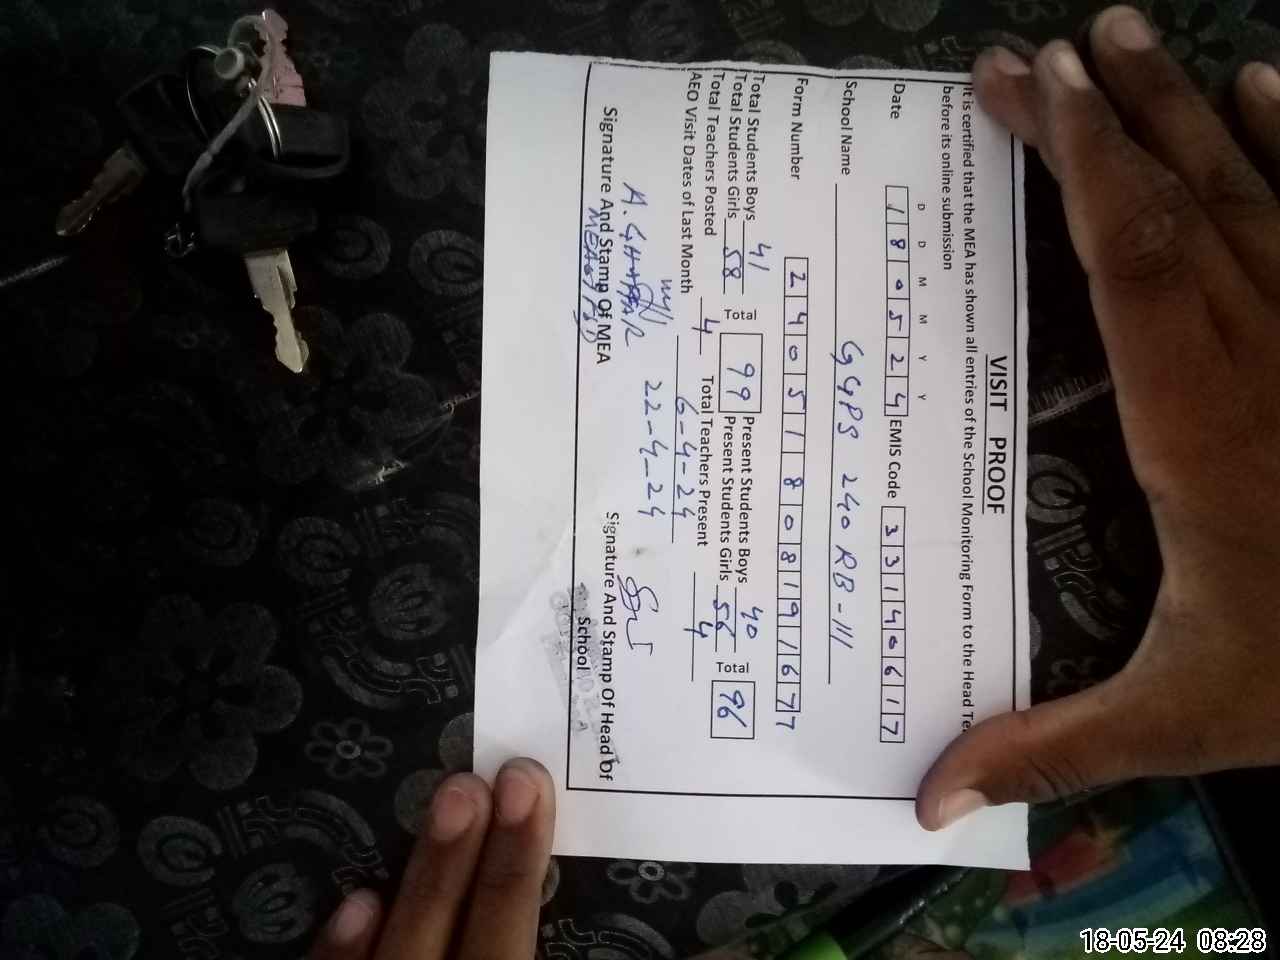 VISIT PROOF
It is certified that the MEA has shown all entries of the School Monitoring Form to the Head Te
before its online submission
D D M M Y Y
Date 180524 EMIS Code 33140617
School Name GGPS 240 RB-III
Form Number 2405180819167 7
Total Students Boys 41 Total 99 Present Students Boys 40 Total 96
Total Students Girls 58 Present Students Girls 56
Total Teachers Posted 4 Total Teachers Present 4
AEO Visit Dates of Last Month 6-4-24
22-4-24
A. GHAFFAR
Signature And Stamp Of MEA Signature And Stamp Of Head Of
School
18-05-24 08:28